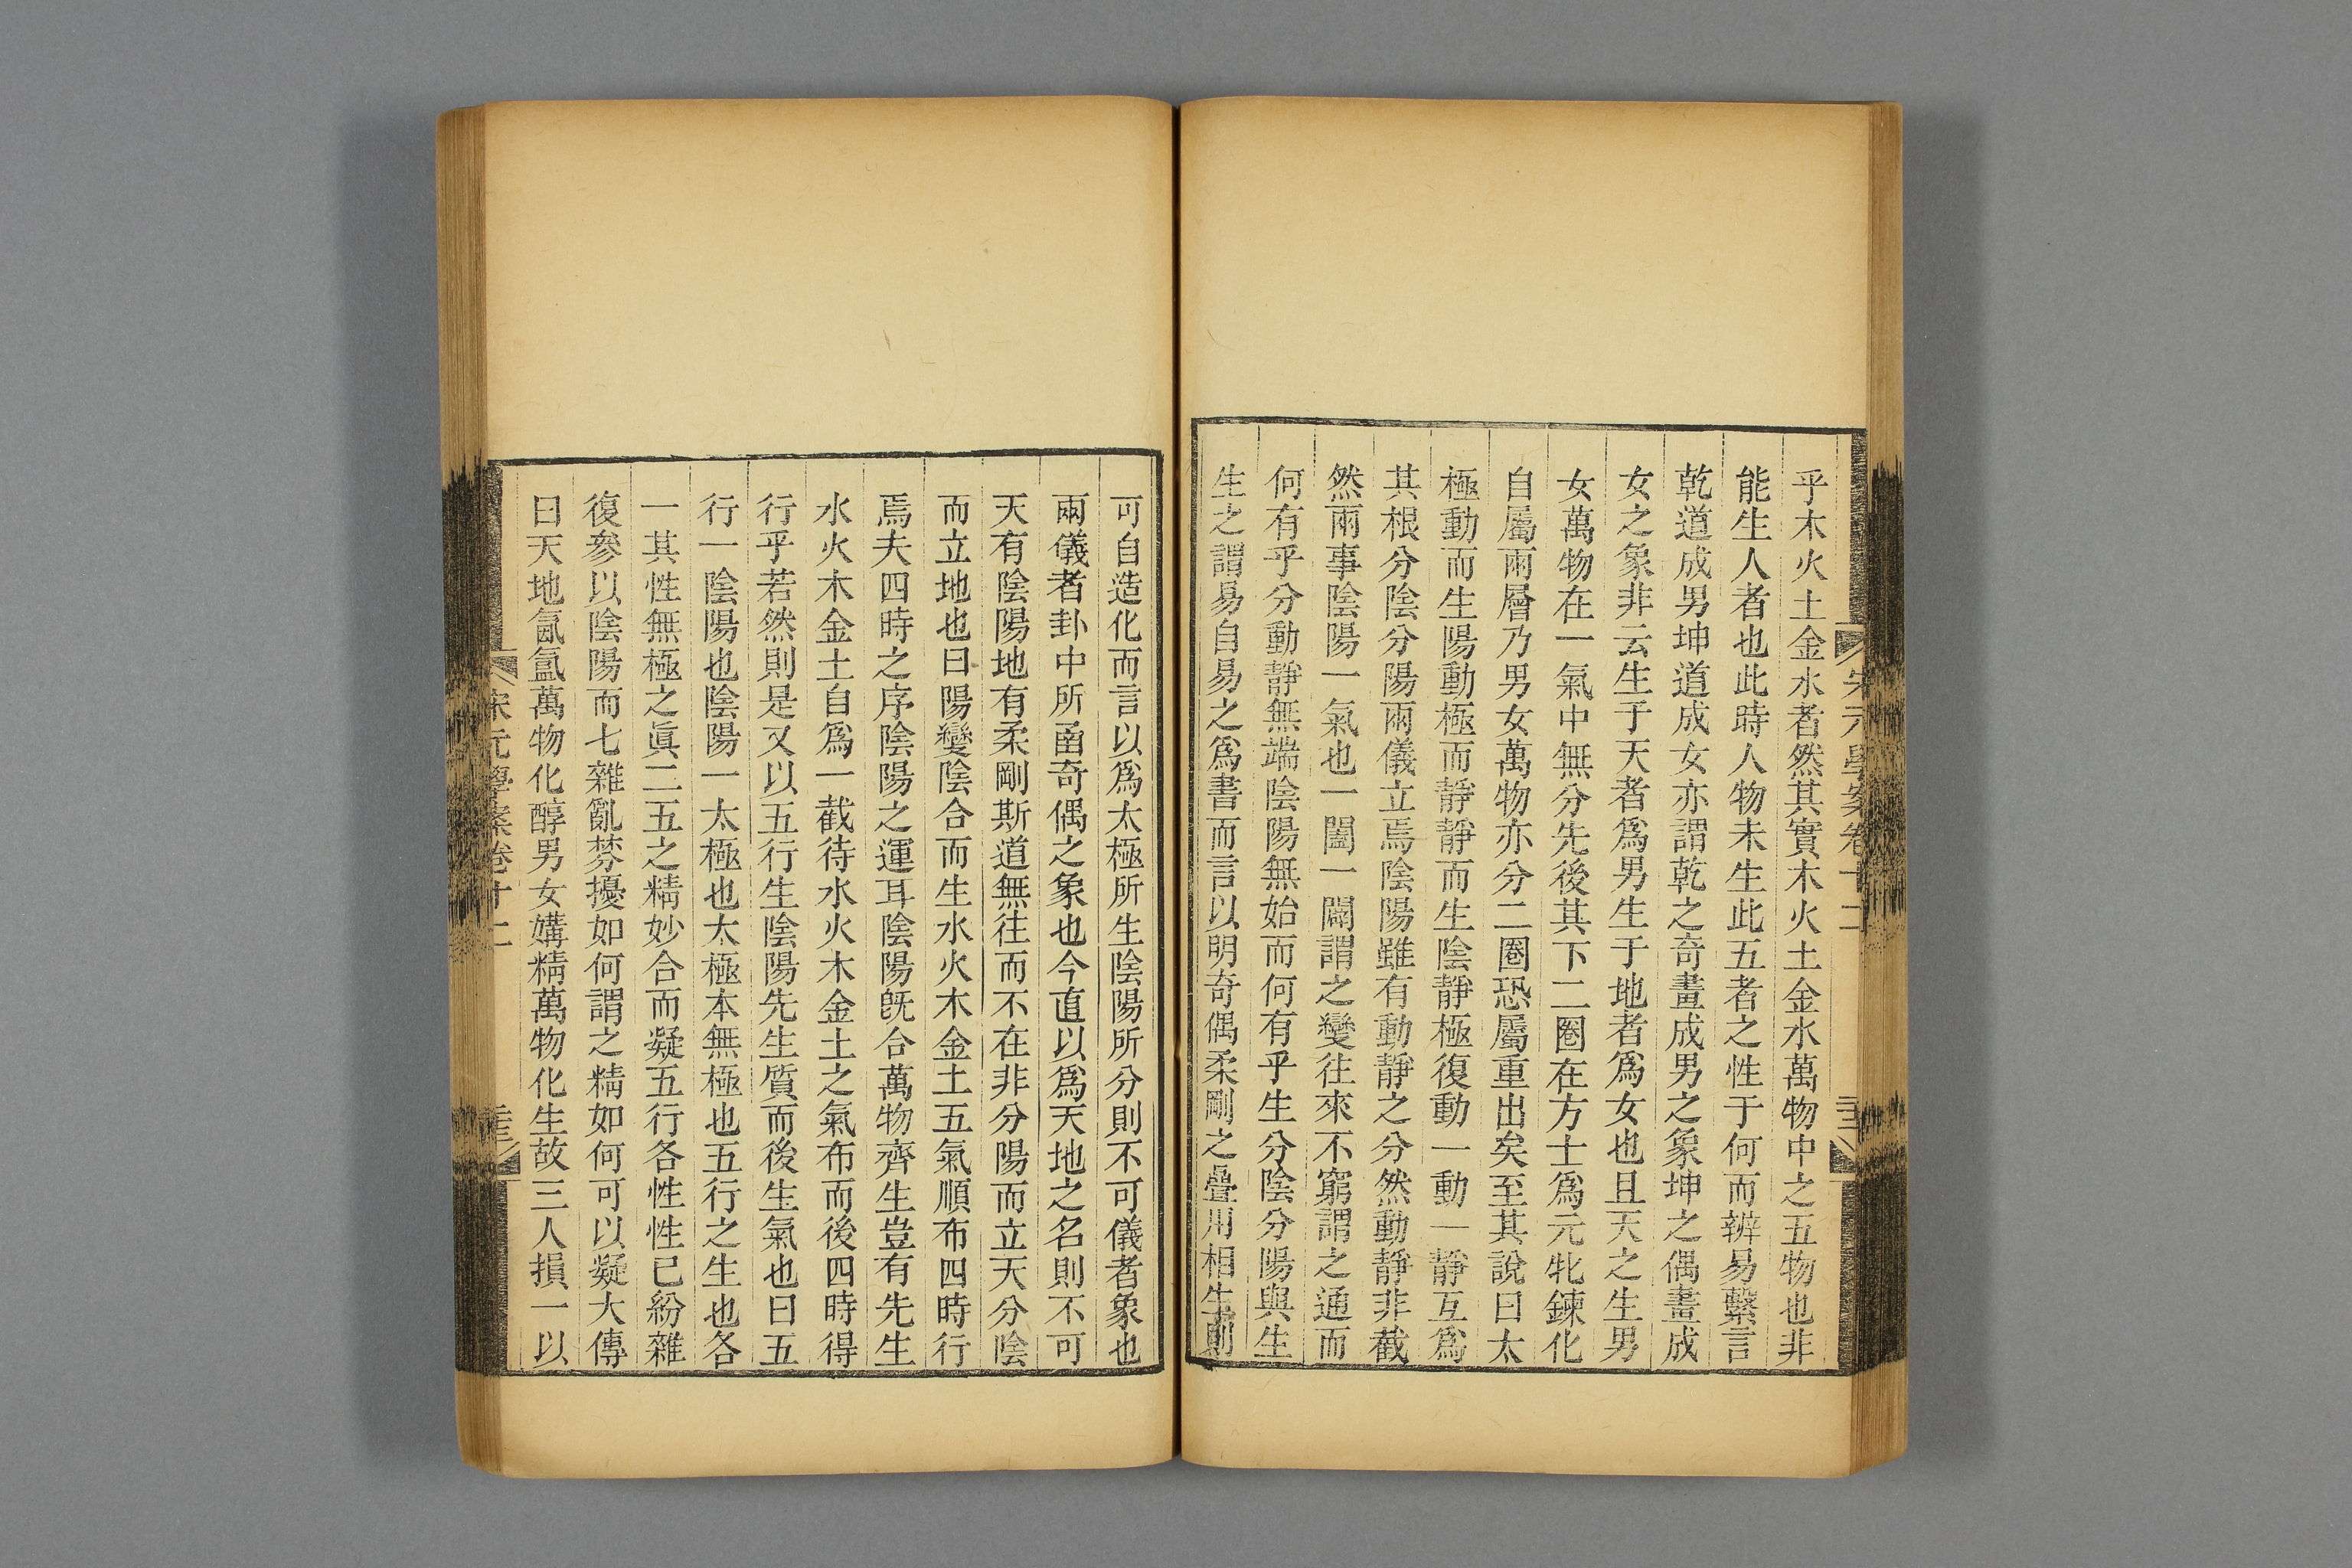 宋元學案卷十二
乎木火土金水者然其實木火土金水萬物中之五物也非
能生人者也此時人物未生此五者之性于何而辨易繫言
乾道成男坤道成女亦謂乾之奇畫成男之象坤之偶畫成
女之象非云生于天者爲男生于地者爲女也且天之生男
女萬物在一氣中無分先後其下二圈在方士爲元牝鍊化
自屬兩層乃男女萬物亦分二圈恐屬重出矣至其說曰太
極動而生陽動極而靜靜而生陰靜極復動一動一靜互爲
其根分陰分陽兩儀立焉陰陽雖有動靜之分然動靜非截
然兩事陰陽一氣也一闔一闢謂之變往來不窮謂之通而
何有乎分動靜無端陰陽無始而何有乎生分陰分陽與生
生之謂易自易之爲書而言以明奇偶柔剛之疊用相生則
可自造化而言以爲太極所生陰陽所分則不可儀者象也
兩儀者卦中所函奇偶之象也今直以爲天地之名則不可
天有陰陽地有柔剛斯道無往而不在非分陽而立天分陰
而立地也曰陽變陰合而生水火木金土五氣順布四時行
焉夫四時之序陰陽之運耳陰陽旣合萬物齊生豈有先生
水火木金土自爲一截待水火木金土之氣布而後四時得
行乎若然則是又以五行生陰陽先生質而後生氣也曰五
行一陰陽也陰陽一太極也太極本無極也五行之生也各
一其性無極之眞二五之精妙合而凝五行各性性已紛雜
復參以陰陽而七雜亂棼擾如何謂之精如何可以凝大傳
曰天地氤氳萬物化醇男女媾精萬物化生故三人損一以
宋元學案卷十二